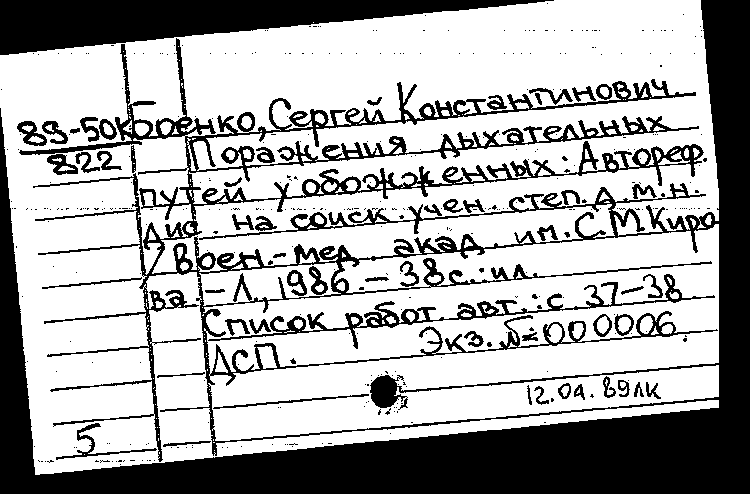 89-50к Боенко, Сергей Константинович.
822 Поражения дыхательных
путей у обожженных: Автореф.
дис. на соиск. учен. степ. д.м.н.
/ Воен.-мед. акад. им. С.М.Киро
ва. - Л., 1986. - 38 с.: ил.
Список работ авт.: с 37-38
ДСП. Экз. №=000006.
12.04.89лк
5